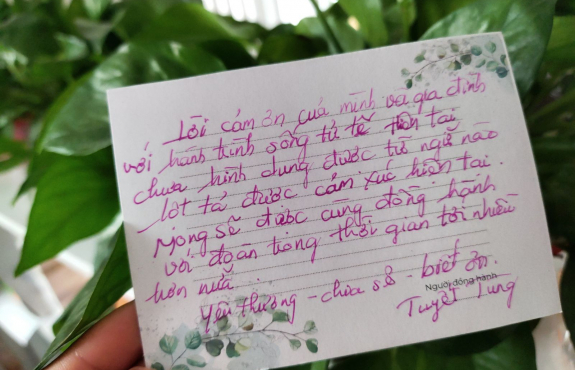 Lời cảm ơn của mình và gia đình
với hành trình sống tử tế hiện tại
chưa hình dung được từ ngữ nào
lột tả được cảm xúc hiện tại.
Mong sẽ được cùng đồng hành
với đoàn trong thời gian tới nhiều
hơn nữa...
Yêu thương - chia sẻ - biết ơn.
Người đồng hành
Tuyết Lung